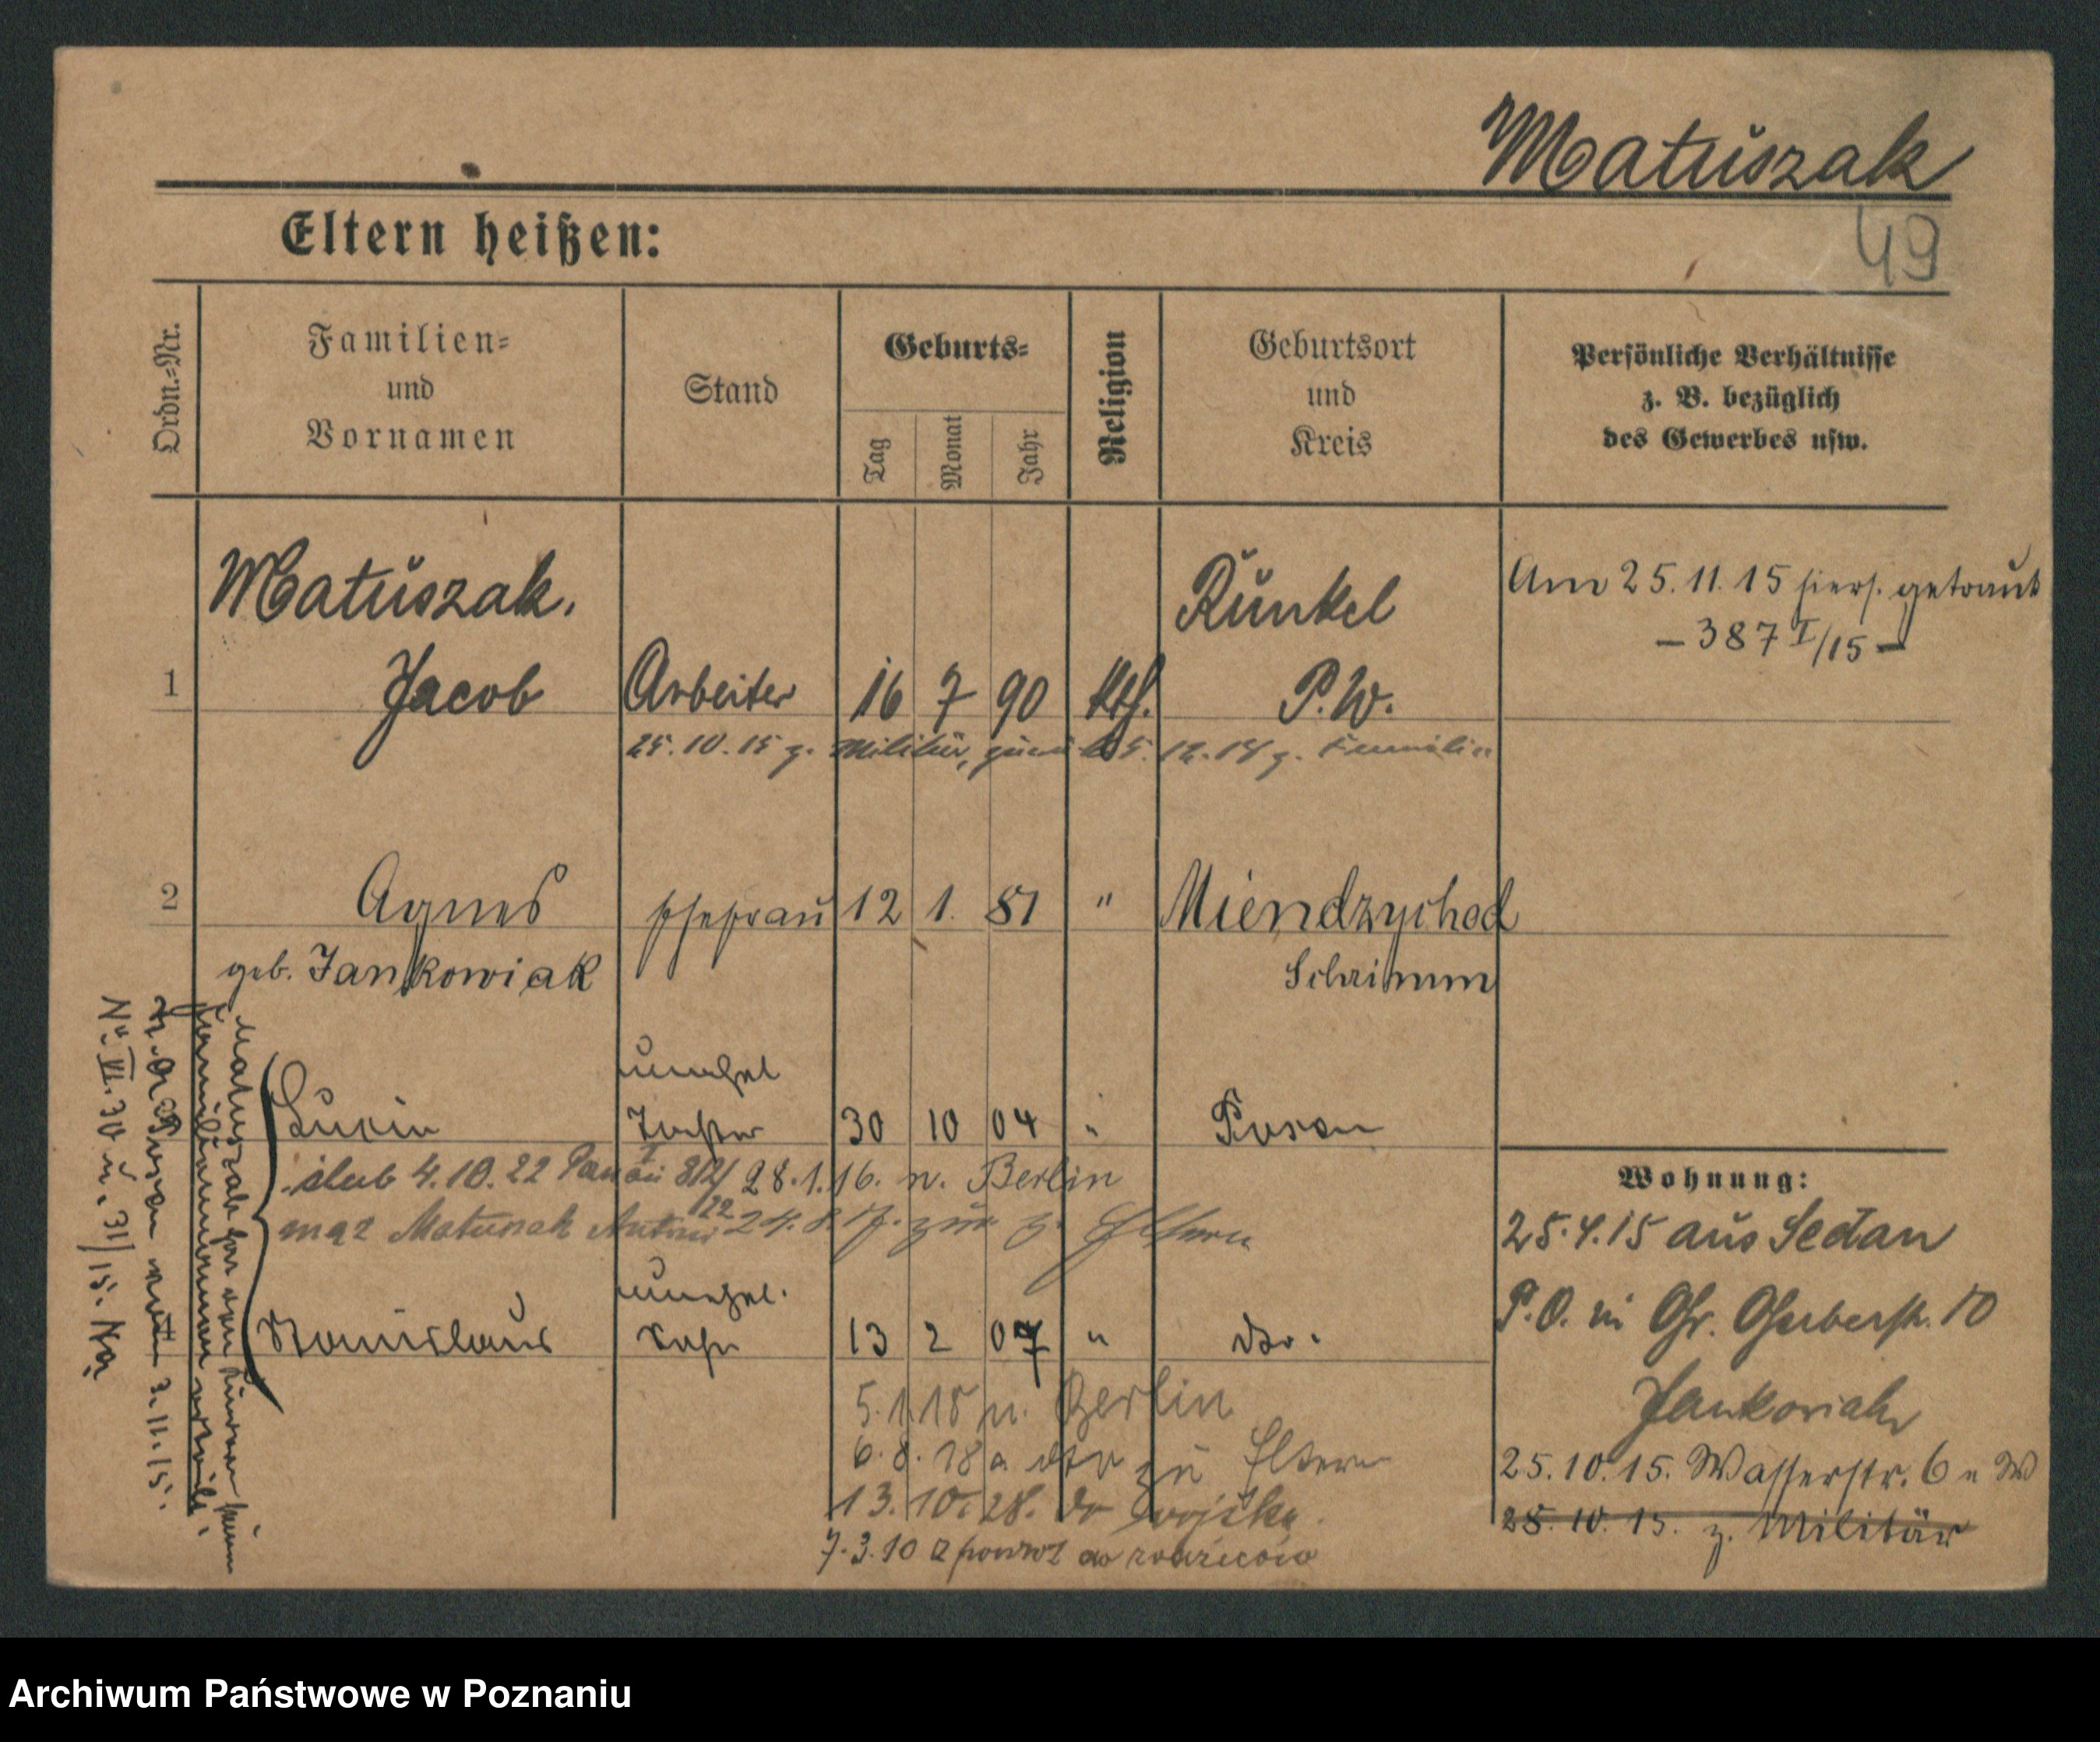 Matuszak
49
Eltern heißen:
Ordn.=Nr.
Familien=
und
Vornamen
Stand
Geburts=
Tag
Monat
Jahr
Religion
Geburtsort
und
Kreis
Persönliche Verhältnisse
z. B. bezüglich
des Gewerbes usw.
Matuszak.
Runkel
Am 25.11.15 hiers. getraut
- 387 I/15 -
1 Jacob Arbeiter 16 7 90 kth. P.W.
25.10.15 z. Militär, 5.12.18 z. Familie
2 Agnes Ehefrau 12 1. 81 " Miendzychod
geb. Jankowiak Schrimm
unehel
Lucia Tochter 30 10 04 " Posen
ślub 4.10.22 28.1.16. n. Berlin
mąż Matuszak Antoni 24. 17. zur z. Eltern
unehel.
Stanislaus Sohn 13 2 07 " dto.
5.1.18 n. Berlin
6.8.18 a dto zu Eltern
13.10.28. do wojska
7.3.10 z powrot do rodziców
Matuszak hat den Kindern seinen
Familiennamen erteilt.
St. A. Posen 3.11.15.
Nr. VI. 30 u. 31/15.
Wohnung:
25.4.15 aus Sedan
P.O. in Gr. Gerberstr. 10
Jankowiak
25.10.15. Wasserstr. 6 W
25.10.15. z. Militär